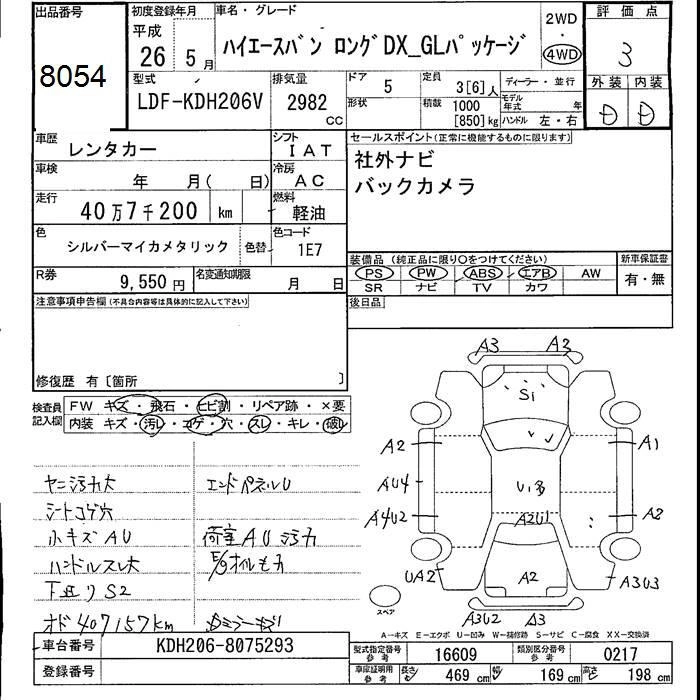 出品番号
8054
初度登録年月
平成
26 5月
車名・グレード
ハイエースバン ロングDX_GLパッケージ
2WD
・
4WD
評価点
3
型式
LDF-KDH206V
排気量
2982
CC
ドア
5
形状
定員
3[6]人
積載
1000
[850]kg
ディーラー・並行
モデル年式 年
ハンドル 左・右
外装 内装
D D
車歴
レンタカー
シフト
IAT
車検
年 月( 日)
冷房
AC
走行
40万7千200 km
燃料
軽油
色
シルバーマイカメタリック
色替
色コード
1E7
R券
9,550円
名変通知期限
月 日
セールスポイント(正常に機能するものに限ります)
社外ナビ
バックカメラ
装備品(純正品に限り○をつけてください)
PS PW ABS エアB AW
SR ナビ TV カワ
新車保証書
有・無
後日品
注意事項申告欄(不具合内容等は具体的に記入して下さい)
修復歴 有〔箇所 〕
検査員記入欄
FW キズ・飛石・ヒビ割・リペア跡・×要
内装 キズ・汚レ・コゲ・穴・スレ・キレ・破レ
ヤニ汚れ大
シートコゲ穴
小キズAU
ハンドルスレ大
下廻りS2
オド407157km
エンドパネルU
荷室AU汚れ
E/gオイルモレ
A3 A2
S1
A2 A1
AU4
U1多
A4U2 A2U1 A2
UA2 A2 A3U3
A3U2 A3
スペア
A-キズ E-エクボ U-凹み W-補修跡 S-サビ C-腐食 XX-交換済
車台番号
KDH206-8075293
登録番号
型式指定番号
参考
16609
類別区分番号
参考
0217
車庫証明用
参考
長さ 469cm 幅 169cm 高さ 198cm